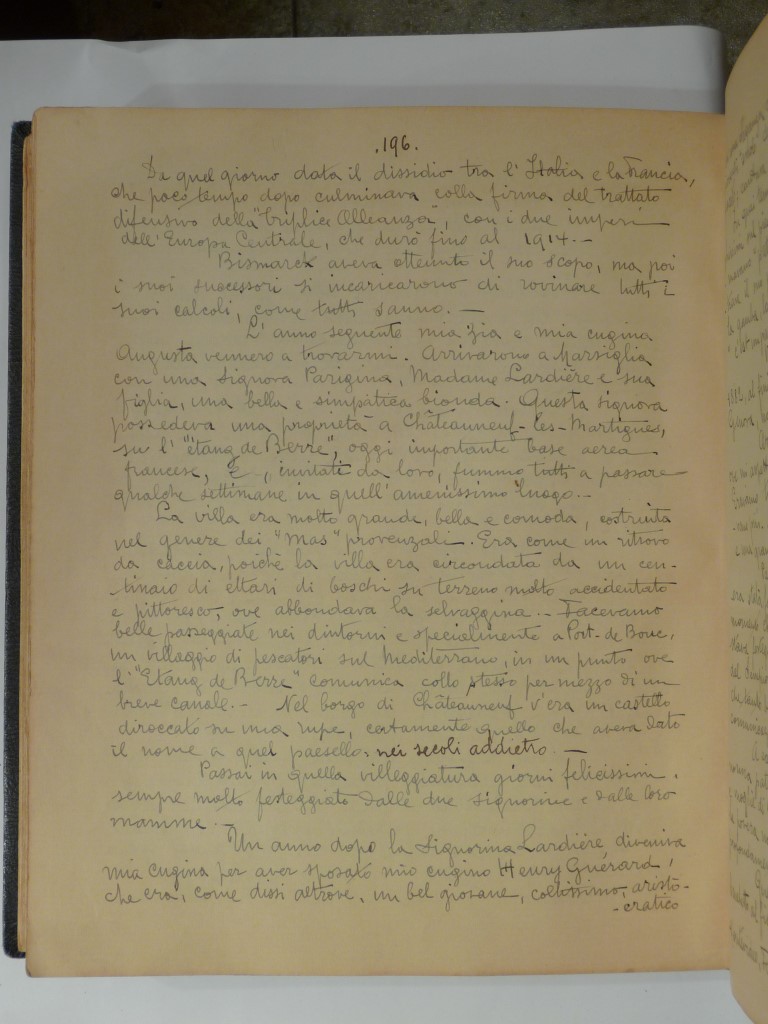 .196.
Da quel giorno data il dissidio tra l'Italia e la Francia,
che poco tempo dopo culminava colla firma del trattato
difensivo della "Triplice Alleanza", con i due imperi
dell'Europa Centrale, che durò fino al 1914.-
Bismarck aveva ottenuto il suo scopo, ma poi
i suoi successori si incaricarono di rovinare tutti i
suoi calcoli, come tutti sanno. -
L'anno seguente mia zia e mia cugina
Augusta vennero a trovarmi. Arrivarono a Marsiglia
con una Signora Parigina, Madame Lardière e sua
figlia, una bella e simpatica bionda. Questa signora
possedeva una proprietà a Châteauneuf-les-Martigues,
su l'"étang de Berre", oggi importante base aerea
francese, E, invitati da loro, fummo tutti a passare
qualche settimane in quell'amenissimo luogo.-
La villa era molto grande, bella e comoda, costruita
nel genere dei "mas" provenzali. Era come un ritrovo
da caccia, poichè la villa era circondata da un cen-
tinaio di ettari di boschi su terreno molto accidentato
e pittoresco, ove abbondava la selvaggina. - Facevamo
belle passeggiate nei dintorni e specialmente a Port-de Bouc,
un villaggio di pescatori sul Mediterrano, in un punto ove
l'"Etang de Berre" comunica collo stesso per mezzo di un
breve canale. - Nel borgo di Châteauneuf v'era un castello
diroccato su una rupe, certamente quello che aveva dato
il nome a quel paesello, nei secoli addietro. -
Passai in quella villeggiatura giorni felicissimi.
sempre molto festeggiato dalle due signorine e dalle loro
mamme. -
Un anno dopo la Signorina Lardière diveniva
mia cugina per aver sposato mio cugino Henry Guérard,
che era, come dissi altrove, un bel giovane, coltissimo, aristo-
-cratico